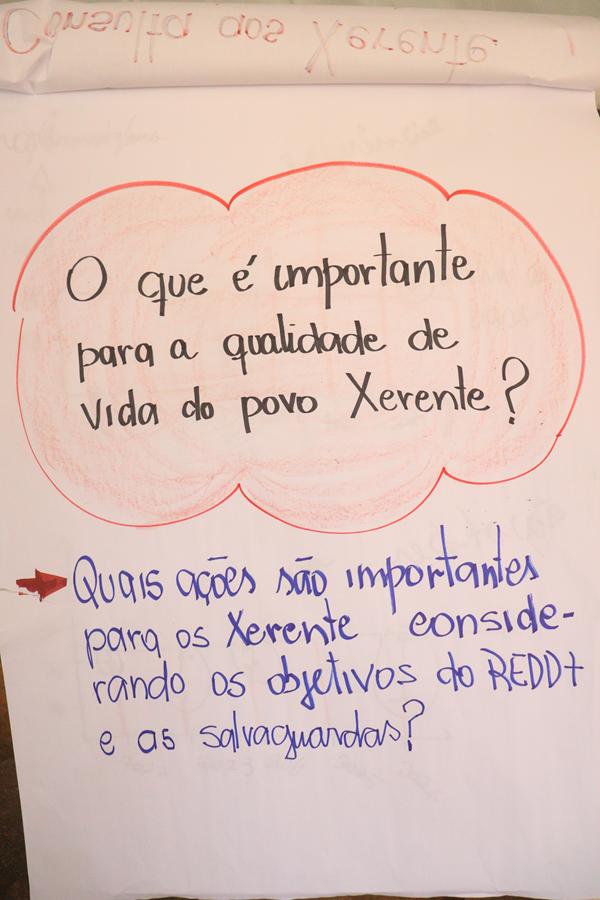 Consulta aos Xerente
O que é importante
para a qualidade de
vida do povo Xerente?
Quais ações são importantes
para os Xerente conside-
rando os objetivos do REDD+
e as salvaguardas?